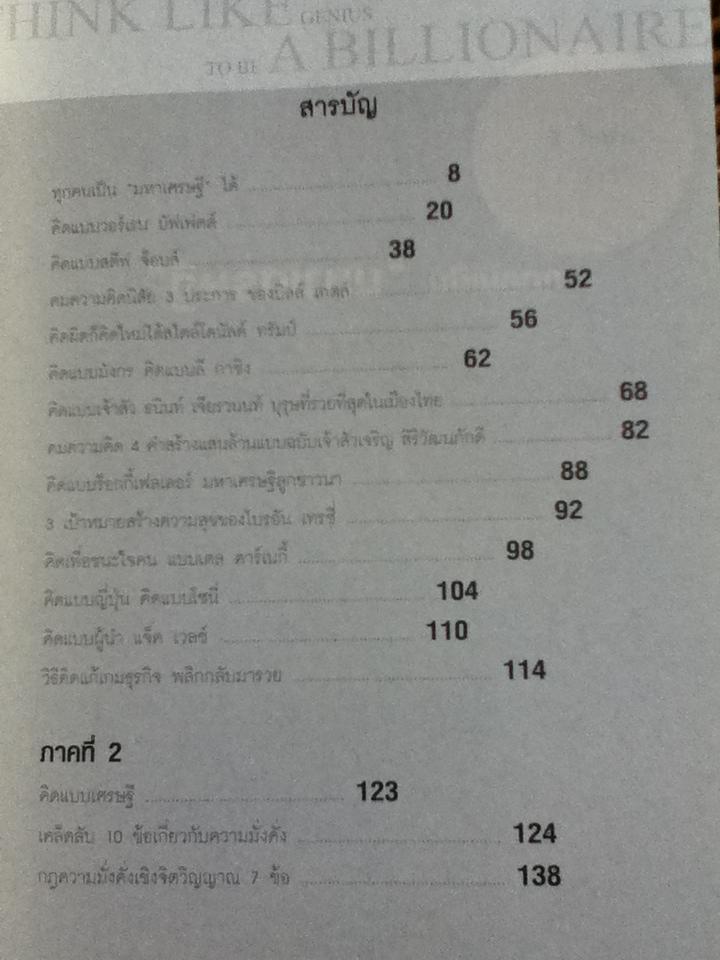 THINK LIKE GENIUS
TO BE A BILLIONAIRE
สารบัญ
ทุกคนเป็น "มหาเศรษฐี" ได้ 8
คิดแบบวอร์เรน บัฟเฟตต์ 20
คิดแบบสตีฟ จ็อบส์ 38
คมความคิดนิสัย 3 ประการ ของบิลล์ เกตส์ 52
คิดผิดก็คิดใหม่ได้สไตล์โดนัลด์ ทรัมป์ 56
คิดแบบมังกร คิดแบบลี กาชิง 62
คิดแบบเจ้าสัว ธนินท์ เจียรวนนท์ บุรุษที่รวยที่สุดในเมืองไทย 68
คมความคิด 4 คำสร้างแสนล้านแบบฉบับเจ้าสัวเจริญ สิริวัฒนภักดี 82
คิดแบบร็อกกี้เฟลเลอร์ มหาเศรษฐีลูกชาวนา 88
3 เป้าหมายสร้างความสุขของไบรอัน เทรซี่ 92
คิดเพื่อชนะใจคน แบบเดล คาร์เนกี้ 98
คิดแบบญี่ปุ่น คิดแบบโซนี่ 104
คิดแบบผู้นำ แจ็ค เวลซ์ 110
วิธีคิดแก้เกมธุรกิจ พลิกกลับมารวย 114
ภาคที่ 2
คิดแบบเศรษฐี 123
เคล็ดลับ 10 ข้อเกี่ยวกับความมั่งคั่ง 124
กฎความมั่งคั่งเชิงจิตวิญญาณ 7 ข้อ 138